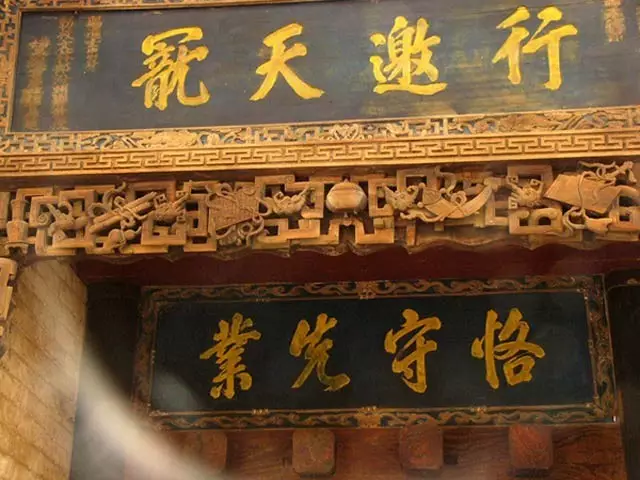 行邀天寵
恪守先業